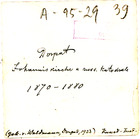 A-95-29 39
Dorpat
Johanniskirche u. russ. Katedrale
1870-1880
(Gab. v. Waldmann, Dorpat, 1933)